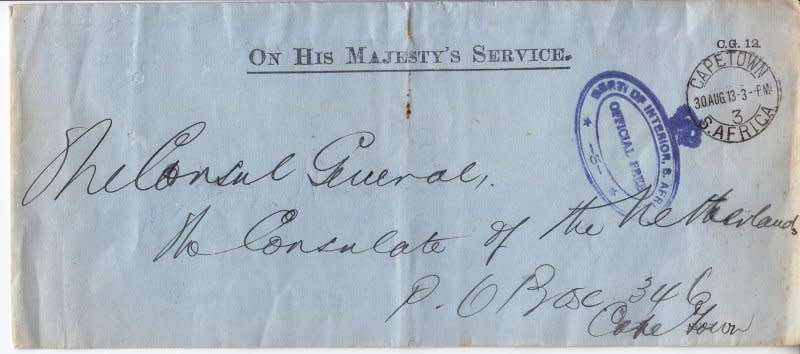 C.G. 12.
ON HIS MAJESTY'S SERVICE.
CAPETOWN
30 AUG 13 - 3 - PM
3
S. AFRICA
DEPT. OF INTERIOR, S. AFRI
OFFICIAL FREE
-5-
The Consul General,
The Consulate of the Netherlands
P. O Box 346
Cape Town